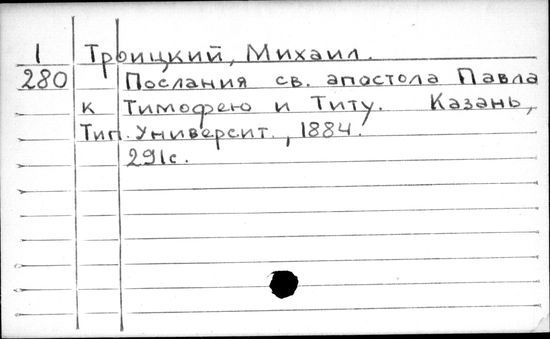 1 Троицкий, Михаил.
280 Послания св. апостола Павла
к Тимофею и Титу. Казань,
Тип. Университ., 1884.
291с.